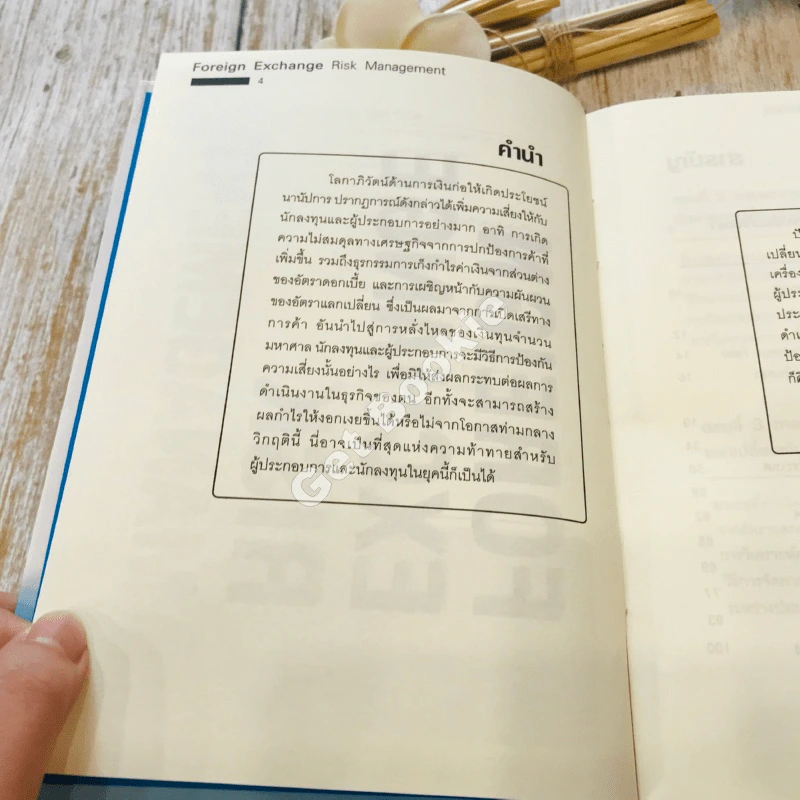 Foreign Exchange Risk Management
4
คำนำ
โลกาภิวัตน์ด้านการเงินก่อให้เกิดประโยชน์
นานัปการ ปรากฏการณ์ดังกล่าวได้เพิ่มความเสี่ยงให้กับ
นักลงทุนและผู้ประกอบการอย่างมาก อาทิ การเกิด
ความไม่สมดุลทางเศรษฐกิจจากการปกป้องการค้าที่
เพิ่มขึ้น รวมถึงธุรกรรมการเก็งกำไรค่าเงินจากส่วนต่าง
ของอัตราดอกเบี้ย และการเผชิญหน้ากับความผันผวน
ของอัตราแลกเปลี่ยน ซึ่งเป็นผลมาจากการเปิดเสรีทาง
การค้า อันนำไปสู่การหลั่งไหลของเงินทุนจำนวน
มหาศาล นักลงทุนและผู้ประกอบการจะมีวิธีการป้องกัน
ความเสี่ยงนั้นอย่างไร เพื่อมิให้ส่งผลกระทบต่อผลการ
ดำเนินงานในธุรกิจของตน อีกทั้งจะสามารถสร้าง
ผลกำไรให้งอกเงยขึ้นได้หรือไม่จากโอกาสท่ามกลาง
วิกฤตินี้ นี่อาจเป็นที่สุดแห่งความท้าทายสำหรับ
ผู้ประกอบการและนักลงทุนในยุคนี้ก็เป็นได้
Get Bookie
เปลี่ยน
เครื่อง
ผู้ประ
ประ